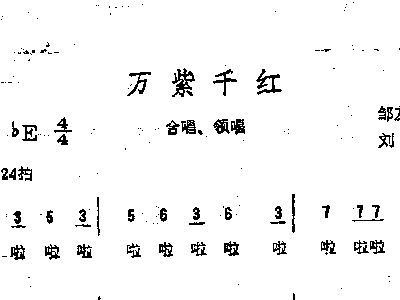 万紫千红
♭E 4/4
合唱、领唱
邹友
刘
24拍
3 5 3 | 5 6 3 6 3 | 7 7 7
啦 啦 啦 啦 啦 啦 啦 啦 啦 啦啦